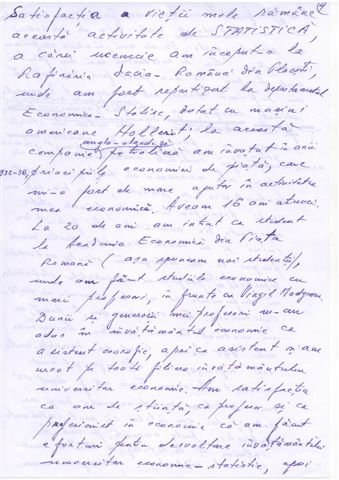 4
Satisfacția a vieții mele rămâne
această activitate de STATISTICĂ,
a cărei ucenicie am început-o la
Rafinăria Dacia-Română din Ploești,
unde am fost repartizat la departamentul
Economico-Statistic, dotat cu mașini
americane Hollerit; la această
anglo-olandeză
companie petrolieră am învățat în anii
932-36, principiile economiei de piață, care
mi-a fost de mare ajutor în activitatea
mea economică. Aveam 16 ani atunci.
La 20 de ani am intrat ca student
la Academia Economică din Piața
Romană (așa spuneam noi studenții),
unde am făcut studiile economice cu
mari profesori, în frunte cu Virgil Madgearu.
Bunii și generoșii mei profesori m-au
adus în învățământul economic ca
asistent onorific, apoi ca asistent și am
urcat pe toată filiera învățământului
universitar economic. Am satisfacția
ca om de știință, ca profesor și ca
profesionist în economie că am făcut
eforturi pentru dezvoltarea învățământului
universitar economic-statistic, apoi